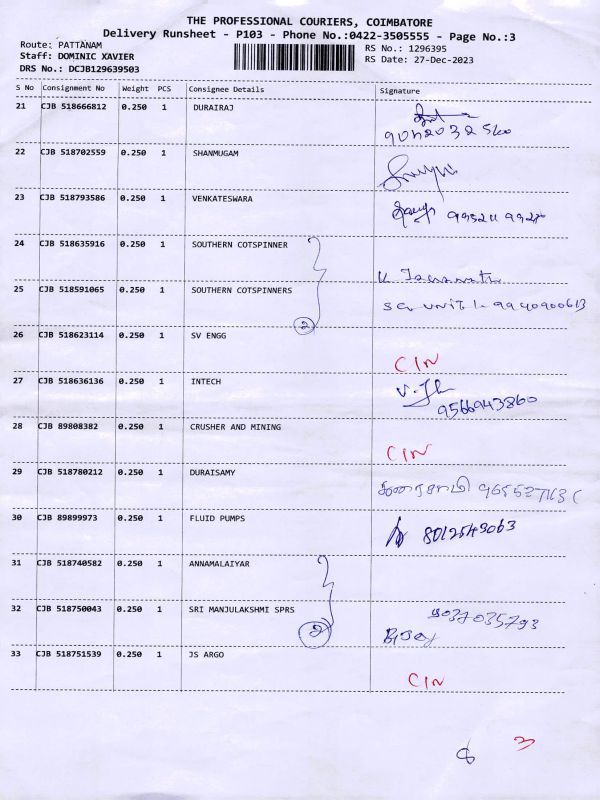 THE PROFESSIONAL COURIERS, COIMBATORE
Delivery Runsheet - P103 - Phone No.:0422-3505555 - Page No.:3
Route: PATTANAM
RS No.: 1296395
Staff: DOMINIC XAVIER
RS Date: 27-Dec-2023
DRS No.: DCJB129639503
S No Consignment No Weight PCS Consignee Details Signature
21 CJB 518666812 0.250 1 DURAIRAJ
22 CJB 518702559 0.250 1 SHANMUGAM
23 CJB 518793586 0.250 1 VENKATESWARA
24 CJB 518635916 0.250 1 SOUTHERN COTSPINNER
25 CJB 518591065 0.250 1 SOUTHERN COTSPINNERS
9940900613
2
26 CJB 518623114 0.250 1 SV ENGG
CIN
27 CJB 518636136 0.250 1 INTECH
9566943860
28 CJB 89808382 0.250 1 CRUSHER AND MINING
CIN
29 CJB 518780212 0.250 1 DURAISAMY
துரைசாமி
30 CJB 89899973 0.250 1 FLUID PUMPS
8012549063
31 CJB 518740582 0.250 1 ANNAMALAIYAR
32 CJB 518750043 0.250 1 SRI MANJULAKSHMI SPRS
9037035793
2
33 CJB 518751539 0.250 1 JS ARGO
CIN
8 3